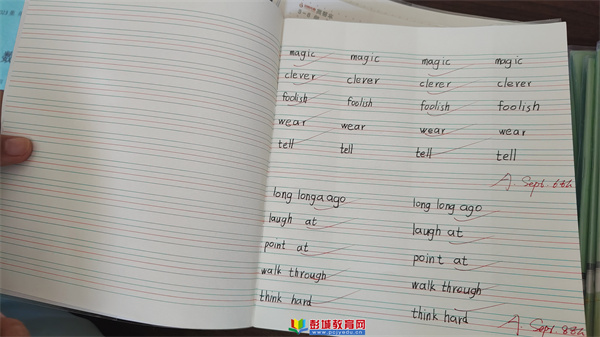 magic magic magic magic
clever clever clever clever
foolish foolish foolish foolish
wear wear wear wear
tell tell tell tell
A. Sept. 6th
long long a ago long long ago
laugh at laugh at
point at point at
walk through walk through
think hard think hard
A. Sept. 8th
彭城教育网
www.pcjyw.com